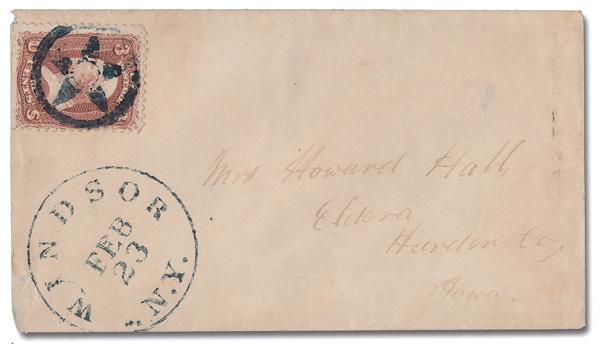 WINDSOR N.Y.
FEB
23
Mrs Howard Hall,
Eldora
Hardin Co,
Iowa.